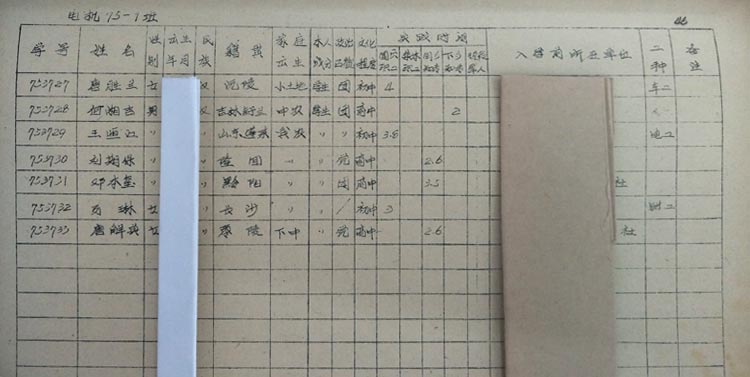 电机75-1班
实践时间
学号 姓名 性别 出生年月 民族 籍贯 家庭出生 本人成分 政治面貌 文化程度 回乡知青 下乡知青 入学前所在单位 工种 备注
753727 唐胜兰 女 沅陵 小土地 学生 团 初中 4 车工
753728 何湘吉 男 吉林 中农 学生 团 高中 2 〃
753729 王恒江 〃 〃 山东蓬莱 贫农 〃 〃 初中 3.8 电工
753730 〃 〃 隆回 〃 〃 党 高中 2.6
753731 邓本玺 〃 〃 黔阳 〃 〃 团 高中 3.5 社
753732 琳 女 〃 长沙 〃 〃 初中 3 钳工
753733 唐解英 女 〃 零陵 下中 〃 党 高中 2.6 社